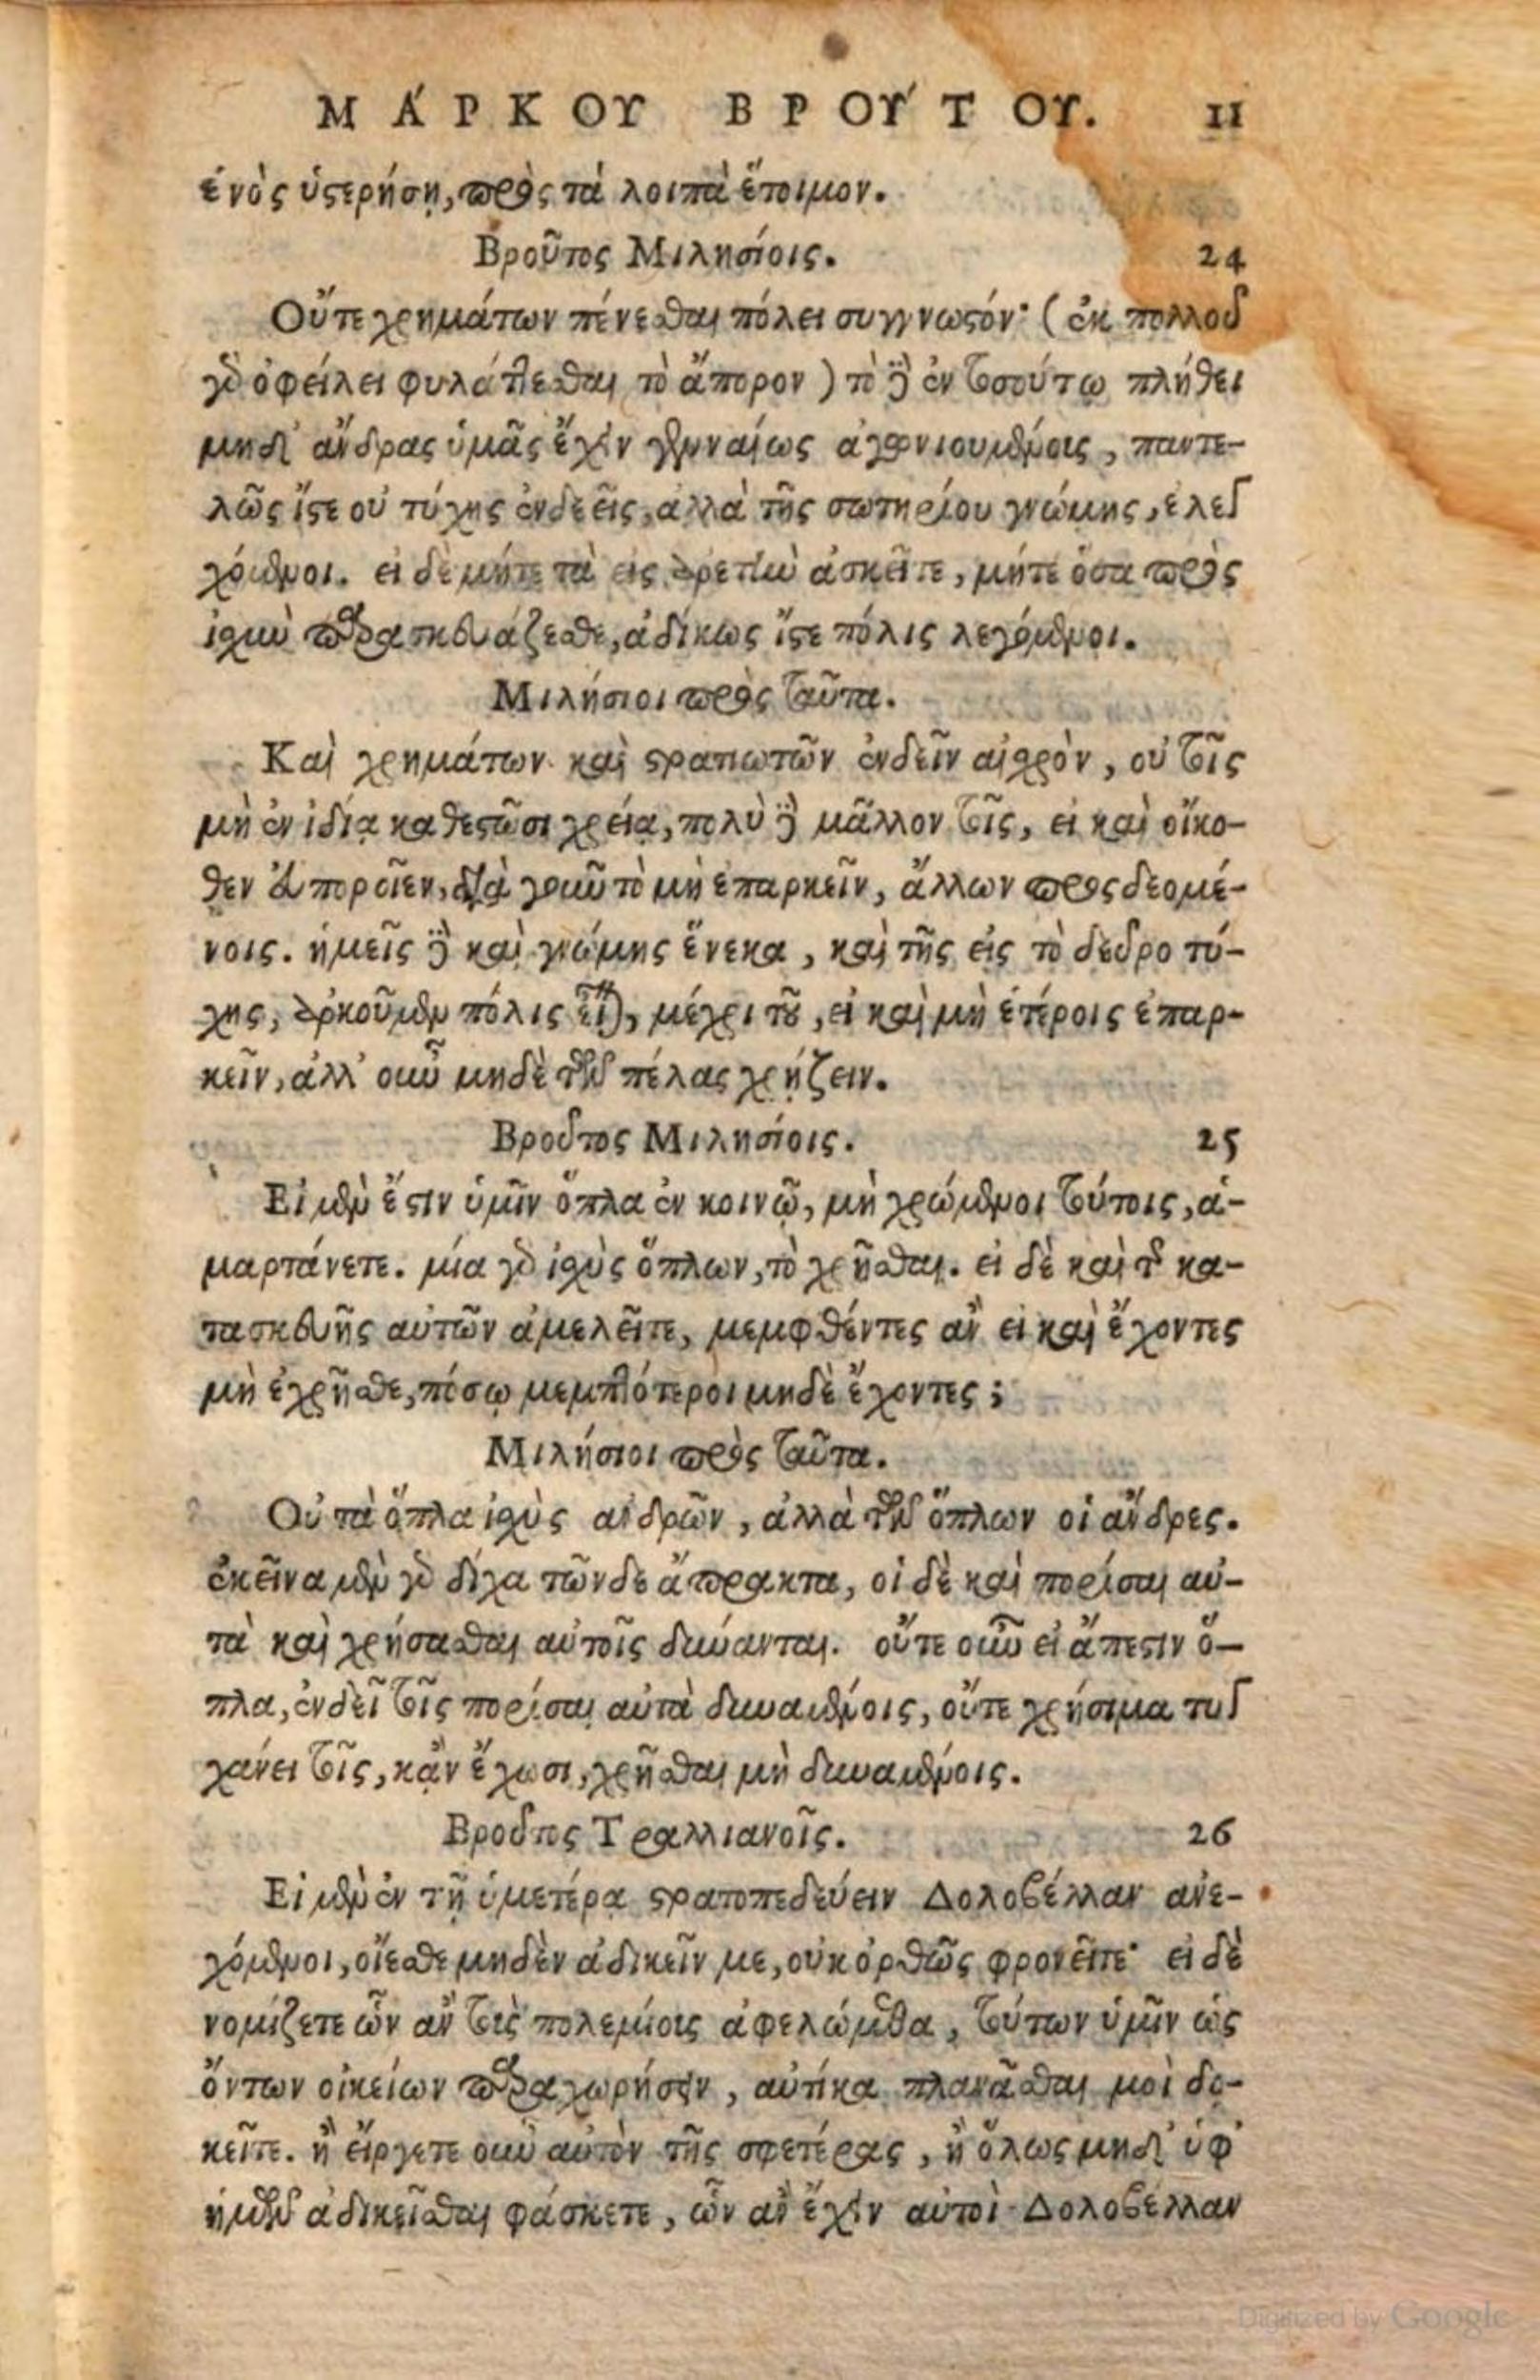 ΜΆΡΚΟΥ ΒΡΟΎΤΟΥ. 11
ἑνὸς ὑστερήσῃ, πρὸς τὰ λοιπὰ ἕτοιμον.
Βροῦτος Μιλησίοις. 24
Οὔτε χρημάτων πένεσθαι πόλει συγγνωστόν· (ἐκ πολλοῦ
γὸ ὀφείλει φυλάττεσθαι τὸ ἄπορον) τὸ δὲ ἐν τοσούτῳ πλήθει
μηδ' ἄνδρας ὑμᾶς ἔχειν γενναίως ἀγωνιουμένοις, παντε-
λῶς ἴστε οὐ τύχης ἐνδεεῖς, ἀλλὰ τῆς σωτηρίου γνώμης, ἐλεγ
χόμενοι. εἰ δὲ μήτε τὰ εἰς ἀρετὴν ἀσκεῖτε, μήτε ὅσα πρὸς
ἰσχὺν παρασκευάζεσθε, ἀδίκως ἴστε πόλις λεγόμενοι.
Μιλήσιοι πρὸς ταῦτα.
Καὶ χρημάτων καὶ στρατιωτῶν ἐνδεῖν αἰσχρὸν, οὐ τοῖς
μὴ ἐν ἰδίᾳ καθεστῶσι χρείᾳ, πολὺ δὲ μᾶλλον τοῖς, εἰ καὶ οἴκο-
θεν εὐποροῖεν, διὰ γοῦν τὸ μὴ ἐπαρκεῖν, ἄλλων προσδεομέ-
νοις. ἡμεῖς δὲ καὶ γνώμης ἕνεκα, καὶ τῆς εἰς τὸ δεῦρο τύ-
χης, ἀρκοῦμεν πόλις εἶναι, μέχρι τοῦ, εἰ καὶ μὴ ἑτέροις ἐπαρ-
κεῖν, ἀλλ' οὖν μηδὲ τῶν πέλας χρῄζειν.
Βροῦτος Μιλησίοις. 25
Εἰ μὲν ἔστιν ὑμῖν ὅπλα ἐν κοινῷ, μὴ χρώμενοι τούτοις, ἁ-
μαρτάνετε. μία γὸ ἰσχὺς ὅπλων, τὸ χρῆσθαι. εἰ δὲ καὶ τῆς κα-
τασκευῆς αὐτῶν ἀμελεῖτε, μεμφθέντες ἂν εἰ καὶ ἔχοντες
μὴ ἐχρῆσθε, πόσῳ μεμπτότεροι μηδὲ ἔχοντες;
Μιλήσιοι πρὸς ταῦτα.
Οὐ τὰ ὅπλα ἰσχὺς ἀνδρῶν, ἀλλὰ τῶν ὅπλων οἱ ἄνδρες.
ἐκεῖνα μὲν γὸ δίχα τῶνδε ἄπρακτα, οἱ δὲ καὶ πορίσαι αὐ-
τὰ καὶ χρήσασθαι αὐτοῖς δύνανται. οὔτε οὖν εἰ ἄπεστιν ὅ-
πλα, ἐνδεῖ τοῖς πορίσαι αὐτὰ δυναμένοις, οὔτε χρήσιμα τυγ
χάνει τοῖς, κἂν ἔχωσι, χρῆσθαι μὴ δυναμένοις.
Βροῦτος Τραλλιανοῖς. 26
Εἰ μὲν ἐν τῇ ὑμετέρᾳ στρατοπεδεύειν Δολοβέλλαν ἀνε-
χόμενοι, οἴεσθε μηδὲν ἀδικεῖν με, οὐκ ὀρθῶς φρονεῖτε· εἰ δὲ
νομίζετε ὧν ἂν τοὶς πολεμίοις ἀφελώμεθα, τούτων ὑμῖν ὡς
ὄντων οἰκείων παραχωρήσειν, αὐτίκα πλανᾶσθαι μοὶ δο-
κεῖτε. ἢ εἴργετε οὖν αὐτὸν τῆς σφετέρας, ἢ ὅλως μηδ' ὑφ'
ἡμῶν ἀδικεῖσθαι φάσκετε, ὧν ἂν ἔχειν αὐτοὶ Δολοβέλλαν
Digitized by Google